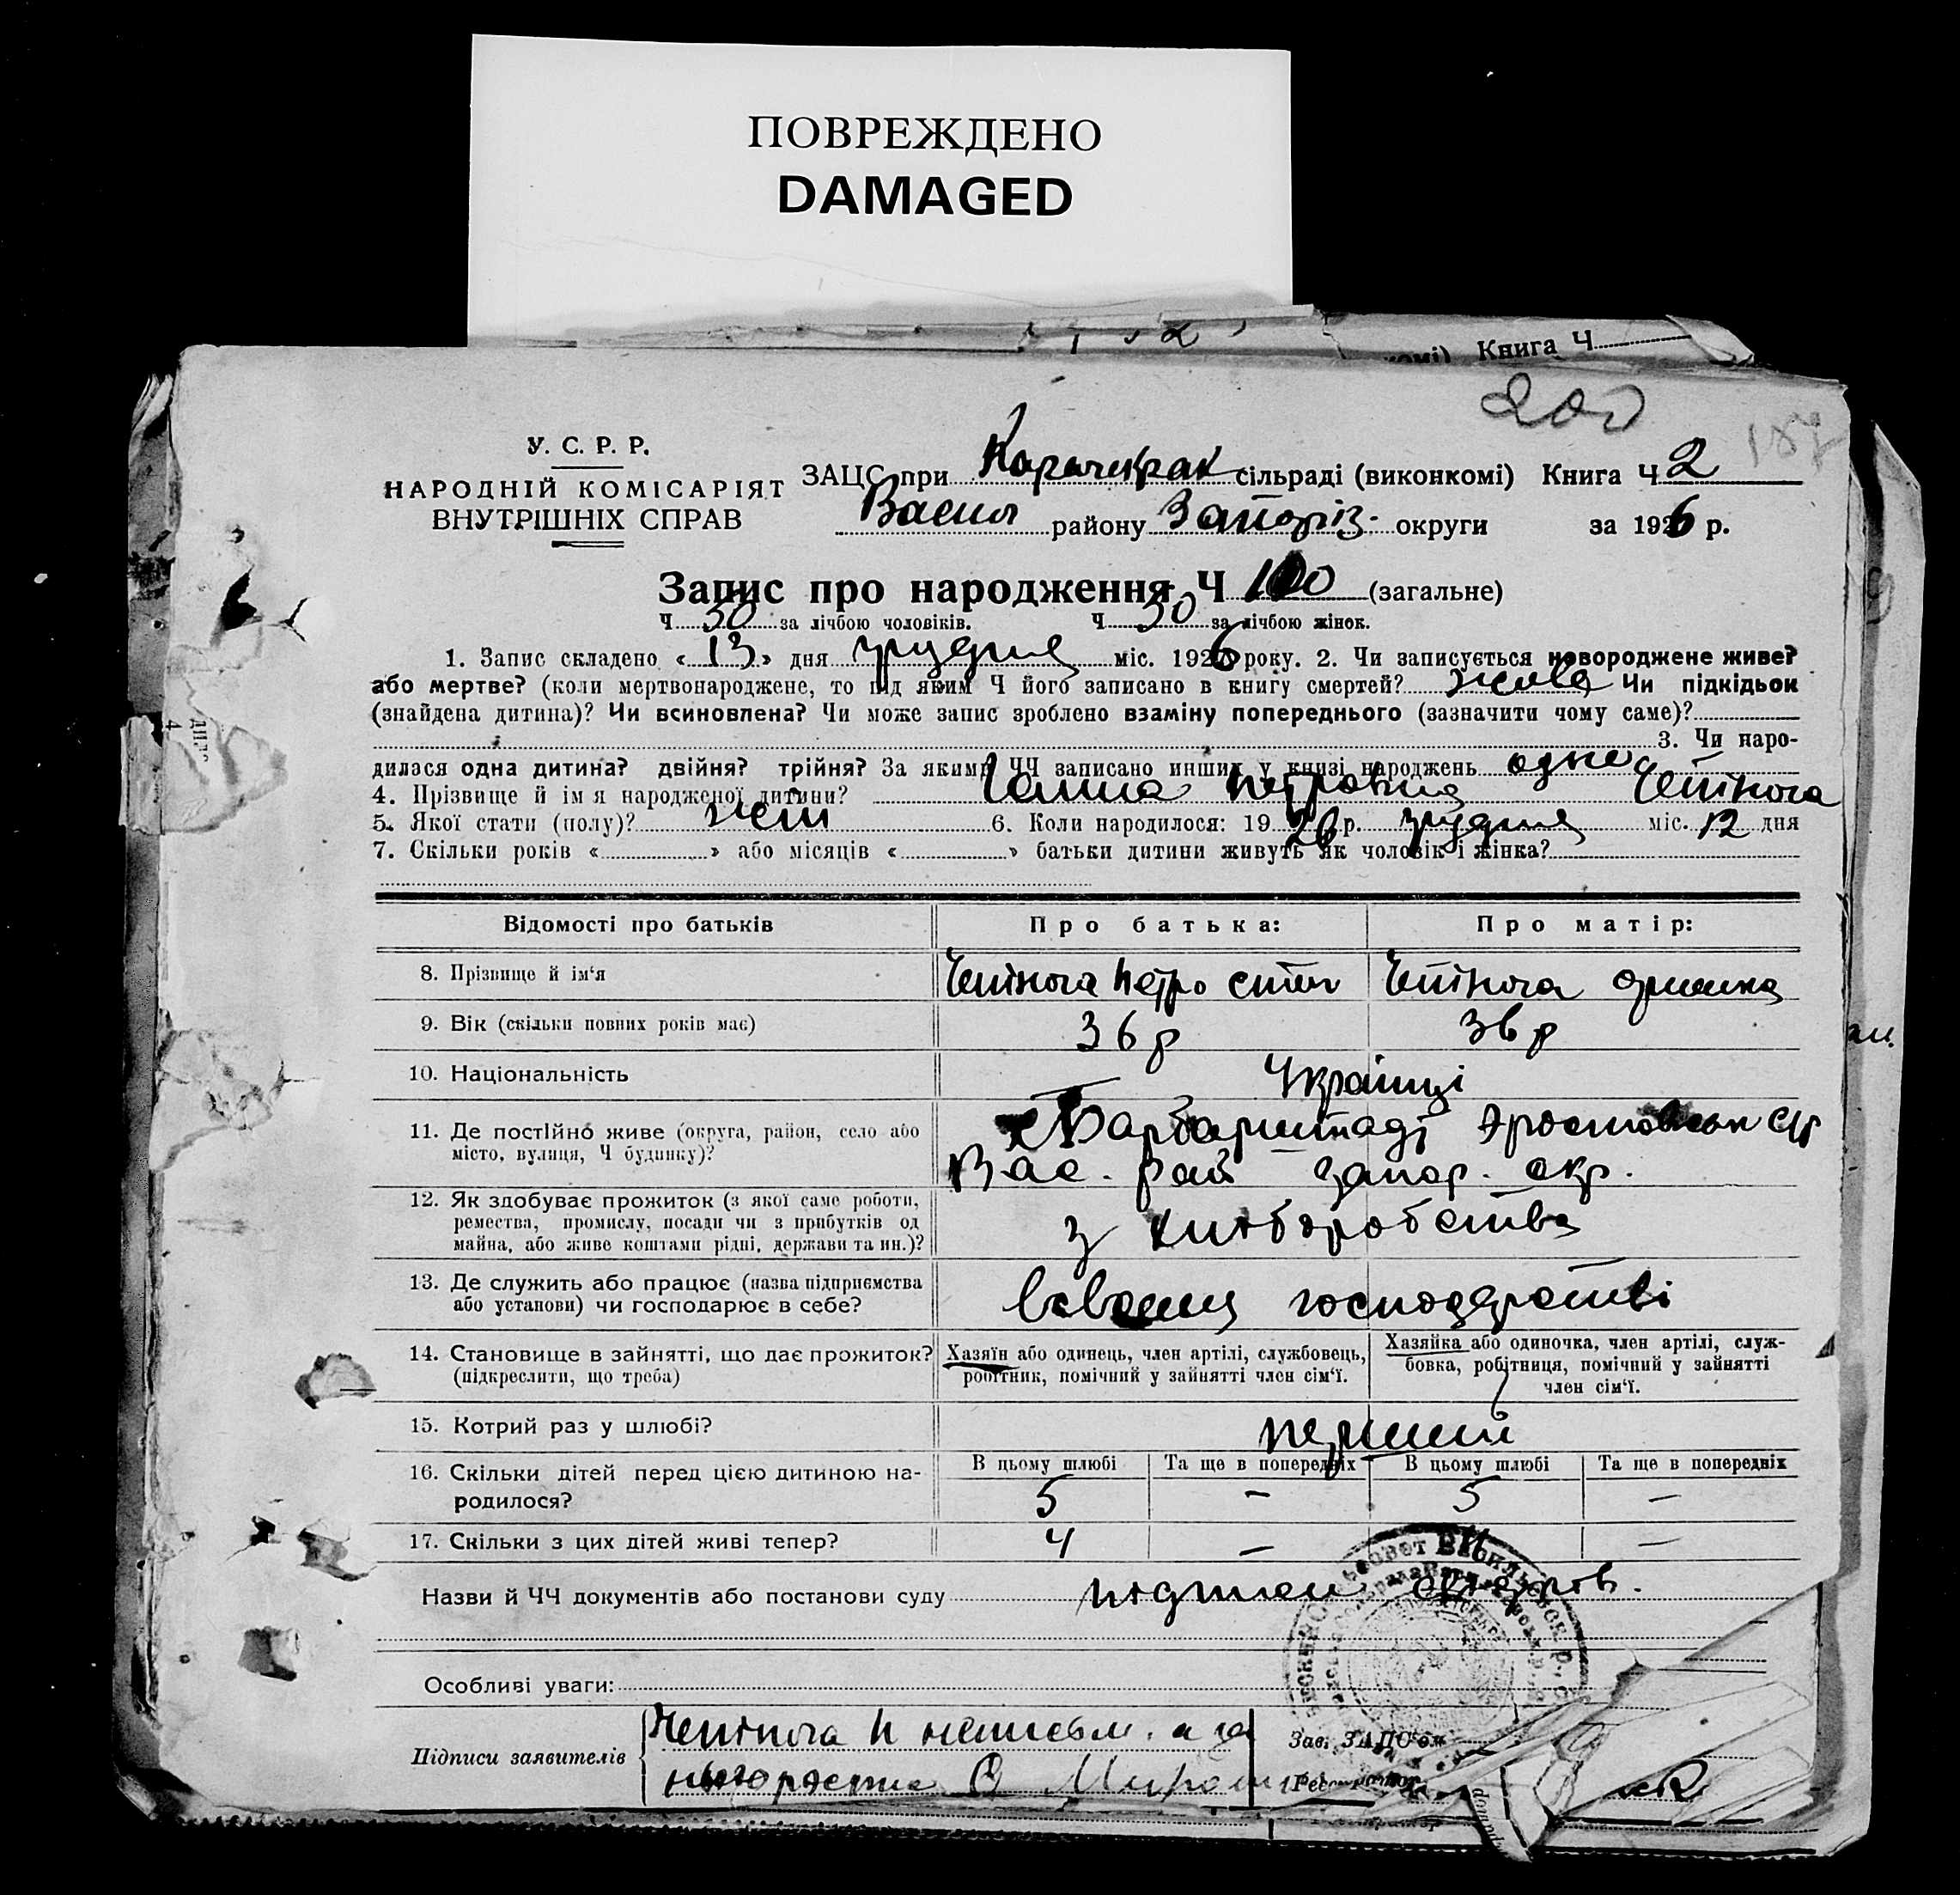 ПОВРЕЖДЕНО
DAMAGED
Книга Ч
200
187
У. С. Р. Р.
НАРОДНІЙ КОМІСАРІЯТ
ВНУТРІШНІХ СПРАВ
ЗАЦС при Карачекрак сільраді (виконкомі) Книга Ч 2
Васил району Запоріз. округи за 1926 р.
Запис про народження Ч 100 (загальне)
Ч 50 за лічбою чоловіків. Ч 50 за лічбою жінок.
1. Запис складено « 13 » дня грудня міс. 1926 року. 2. Чи записується новороджене живе?
або мертве? (коли мертвонароджене, то під яким Ч його записано в книгу смертей? живе Чи підкідьок
(знайдена дитина)? Чи всиновлена? Чи може запис зроблено взаміну попереднього (зазначити чому саме)?
3. Чи наро-
дилася одна дитина? двійня? трійня? За якими ЧЧ записано инших у книзі народжень одно
4. Прізвище й ім я народженої дитини? Ганна Петровна Чепінога
5. Якої стати (полу)? жін 6. Коли народилося: 1926 р. грудня міс. 12 дня
7. Скільки років « » або місяців « » батьки дитини живуть як чоловік і жінка?
Відомості про батьків Про батька: Про матір:
8. Прізвище й ім‘я Чепінога Петро Степ Чепінога Оришка
9. Вік (скільки повних років має) 36 р 36 р
10. Національність Українці
11. Де постійно живе (округа, район, село або
місто, вулиця, Ч будинку)?
Вас. рай запор. окр.
12. Як здобуває прожиток (з якої саме роботи,
ремества, промислу, посади чи з прибутків од
майна, або живе коштами рідні, держави та ин.)?
з хліборобства
13. Де служить або працює (назва підприємства
або установи) чи господарює в себе?
господарстві
14. Становище в зайнятті, що дає прожиток?
(підкреслити, що треба)
Хазяїн або одинець, член артілі, службовець,
робітник, помічний у зайнятті член сім‘ї.
Хазяйка або одиночка, член артілі, служ-
бовка, робітниця, помічний у зайнятті
член сім‘ї.
15. Котрий раз у шлюбі? перший
В цьому шлюбі Та ще в попередніх В цьому шлюбі Та ще в попередніх
16. Скільки дітей перед цією дитиною на-
родилося?
5 – 5 –
17. Скільки з цих дітей живі тепер? 4 – 4 –
Назви й ЧЧ документів або постанови суду
Особливі уваги:
Підписи заявителів
Чепінога П неписьм. а за
Зав. ЗАЦС'ом